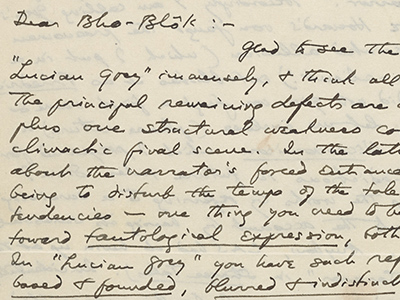 Dear Bho-Blôk :—
Glad to see the
"Lucian Grey" immensely, & think all
the principal remaining defects are
plus one structural weakness co
climactic final scene. In the latt
about the narrator's forced entrance
being to disturb the tempo of the tale
tendencies — one thing you need to
toward tautological expression, both
In "Lucian Grey" you have such rep
based & founded, blurred & indistinct